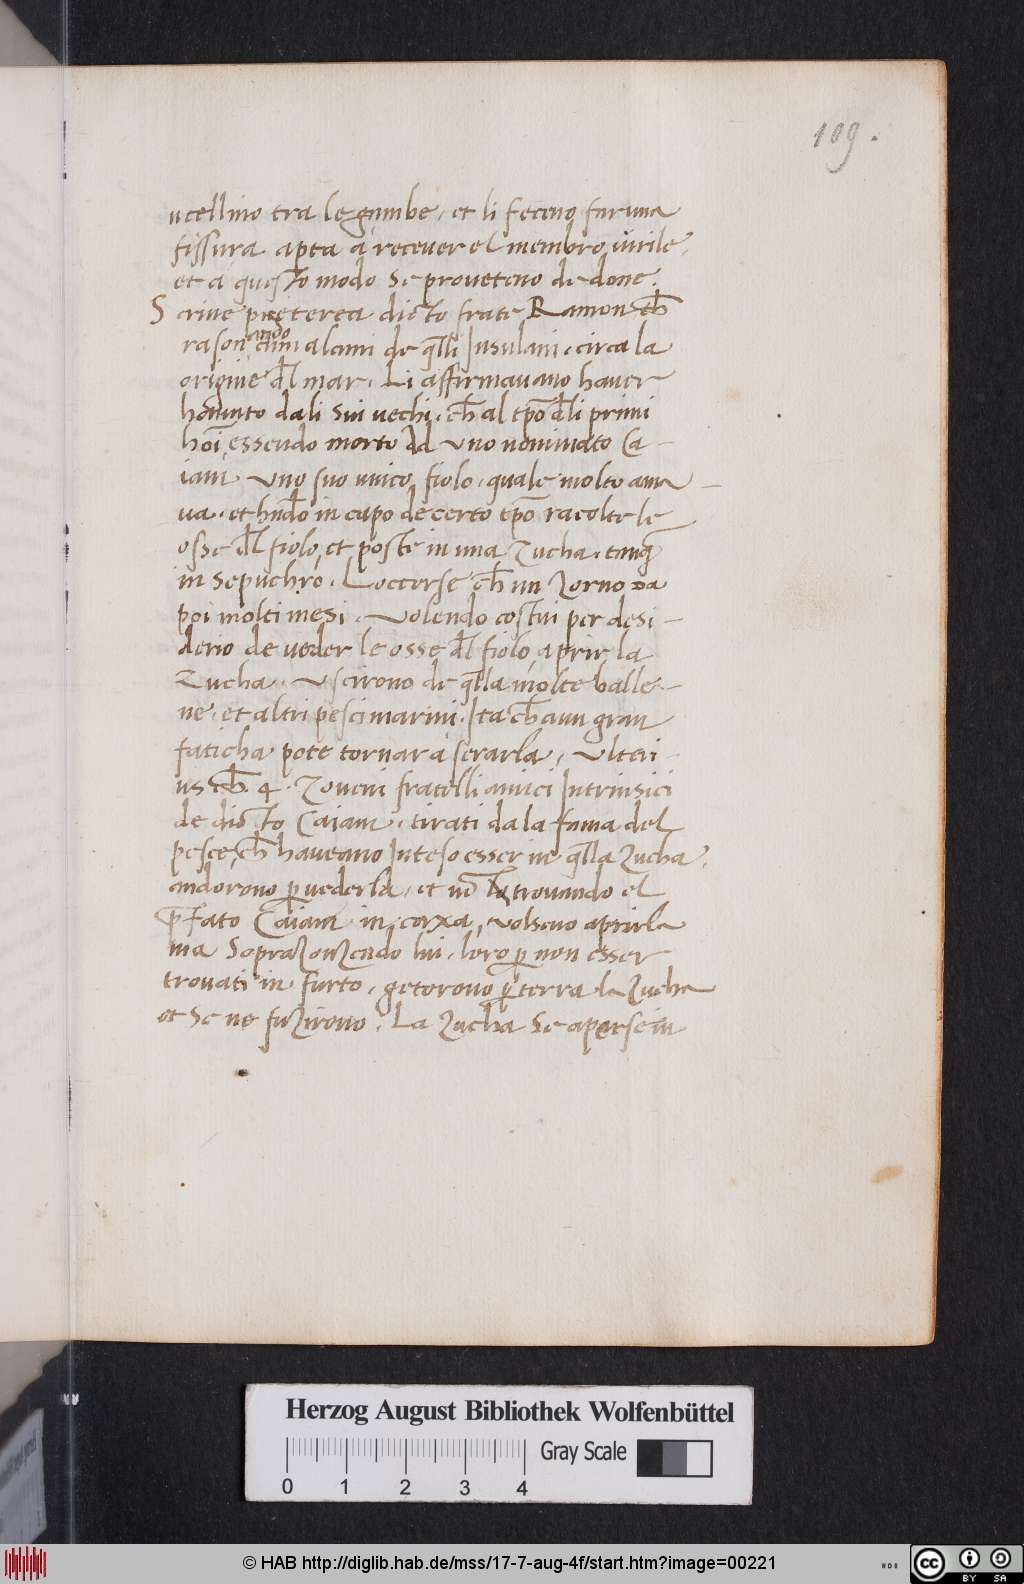 109.
ucellino tra le gambe, et li feceno far una
fissura apta a recever el membro virile,
et a questo modo se proveteno de done.
Scrive preterea dicto frate Ramon ch̄
rasonando cum alcuni de q̄lli Insulani, circa la
origine d̄l mar. Li affirmavano haver
havunto dali sui vechi, ch̄ al tp̄o d̄li primi
hoī, essendo morto ad uno nominato Ca-
iam Uno suo unico fiolo, quale molto ama-
va, et hn̄do in capo de certo tp̄o racolte le
osse d̄l fiolo, et poste in una Zucha, tanq̄
in Sepuchro. L occorse ch̄ un Zorno da
poi molti mesi. Volendo costui per desi-
derio de veder le osse d̄l fiolo, aprir la
Zucha. Uscirono de q̄lla molte balle-
ne, et altri pesci marini. Ita ch̄ aun gran
faticha pote tornar a serarla, Ulteri-
us ch̄ 4. Zoveni fratelli amici Intrinsici
de dicto Caiam, tirati da la fama del
pesce, ch̄ haveano Inteso esser in q̄lla Zucha,
andorono p̄ vederla, et nō trovando el
p̄fato Caiam in caxa, volseno aprirla
ma SopraZonZendo lui, loro p̄ non esser
trovati in furto, getorono p̄ terra la Zucha
et Se ne fuZirono. La Zucha Se aperse in
Herzog August Bibliothek Wolfenbüttel
Gray Scale
0 1 2 3 4
© HAB http://diglib.hab.de/mss/17-7-aug-4f/start.htm?image=00221
cc BY SA